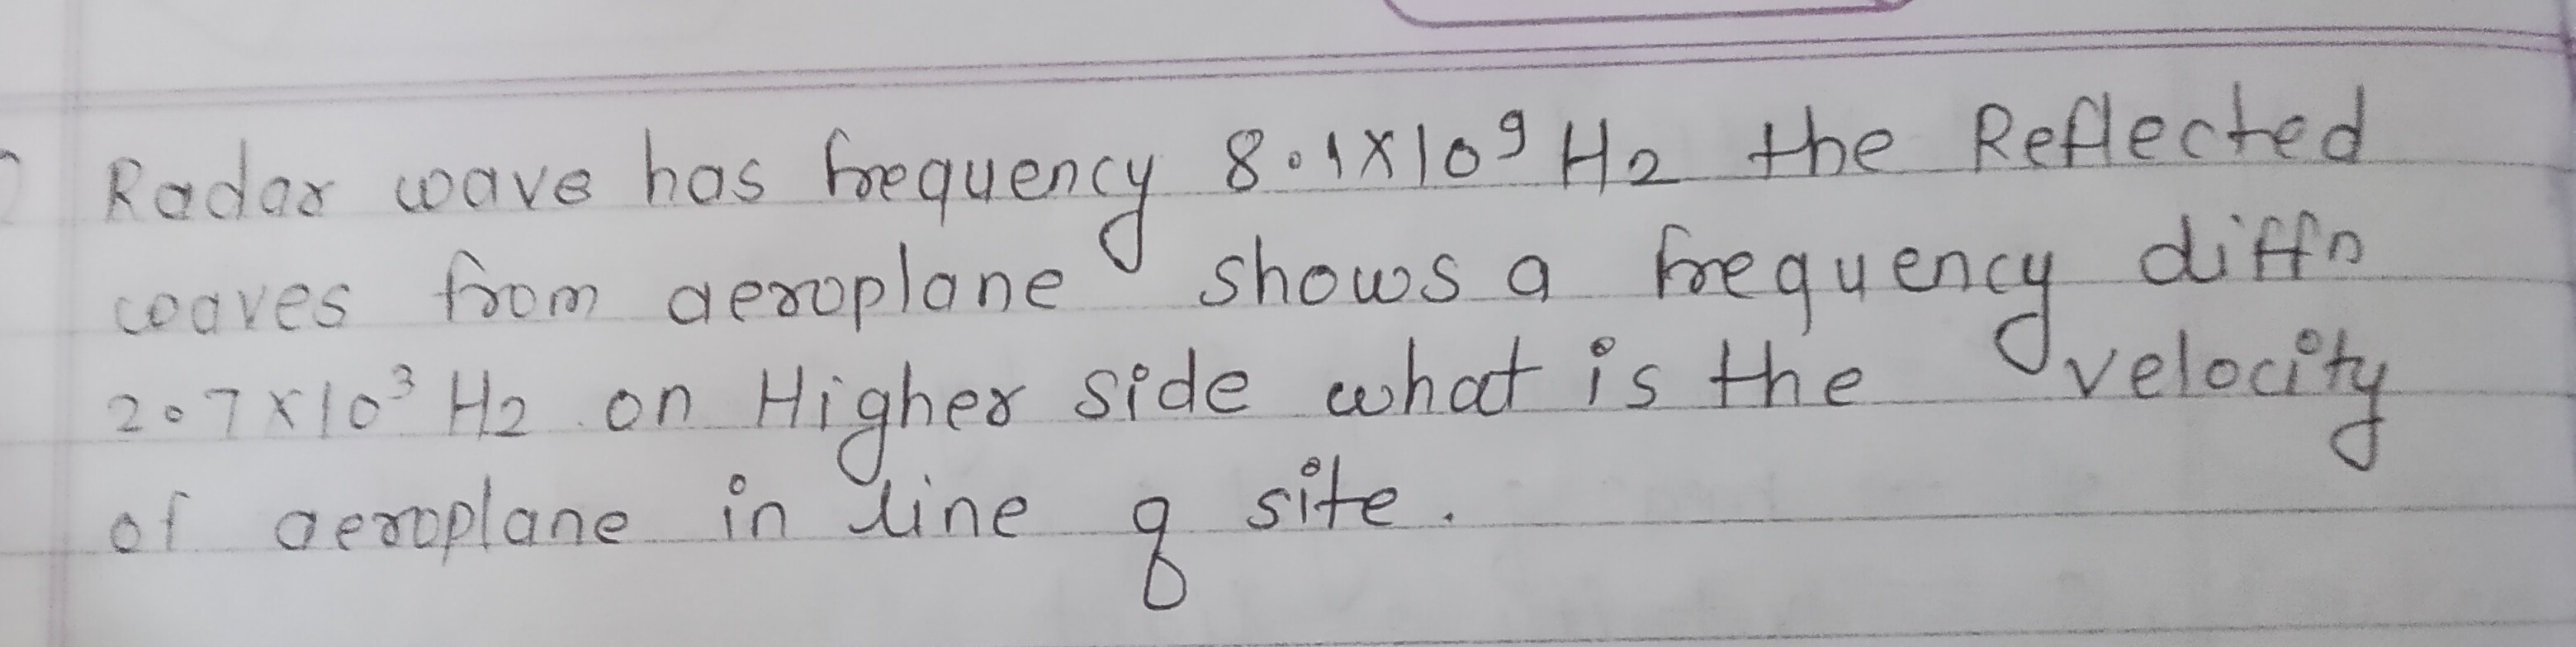 Radar wave has frequency 8.1x10⁹ Hz the Reflected
waves from aeroplane shows a frequency diffn
2.7x10³ Hz on Higher side what is the velocity
of aeroplane in line of site.